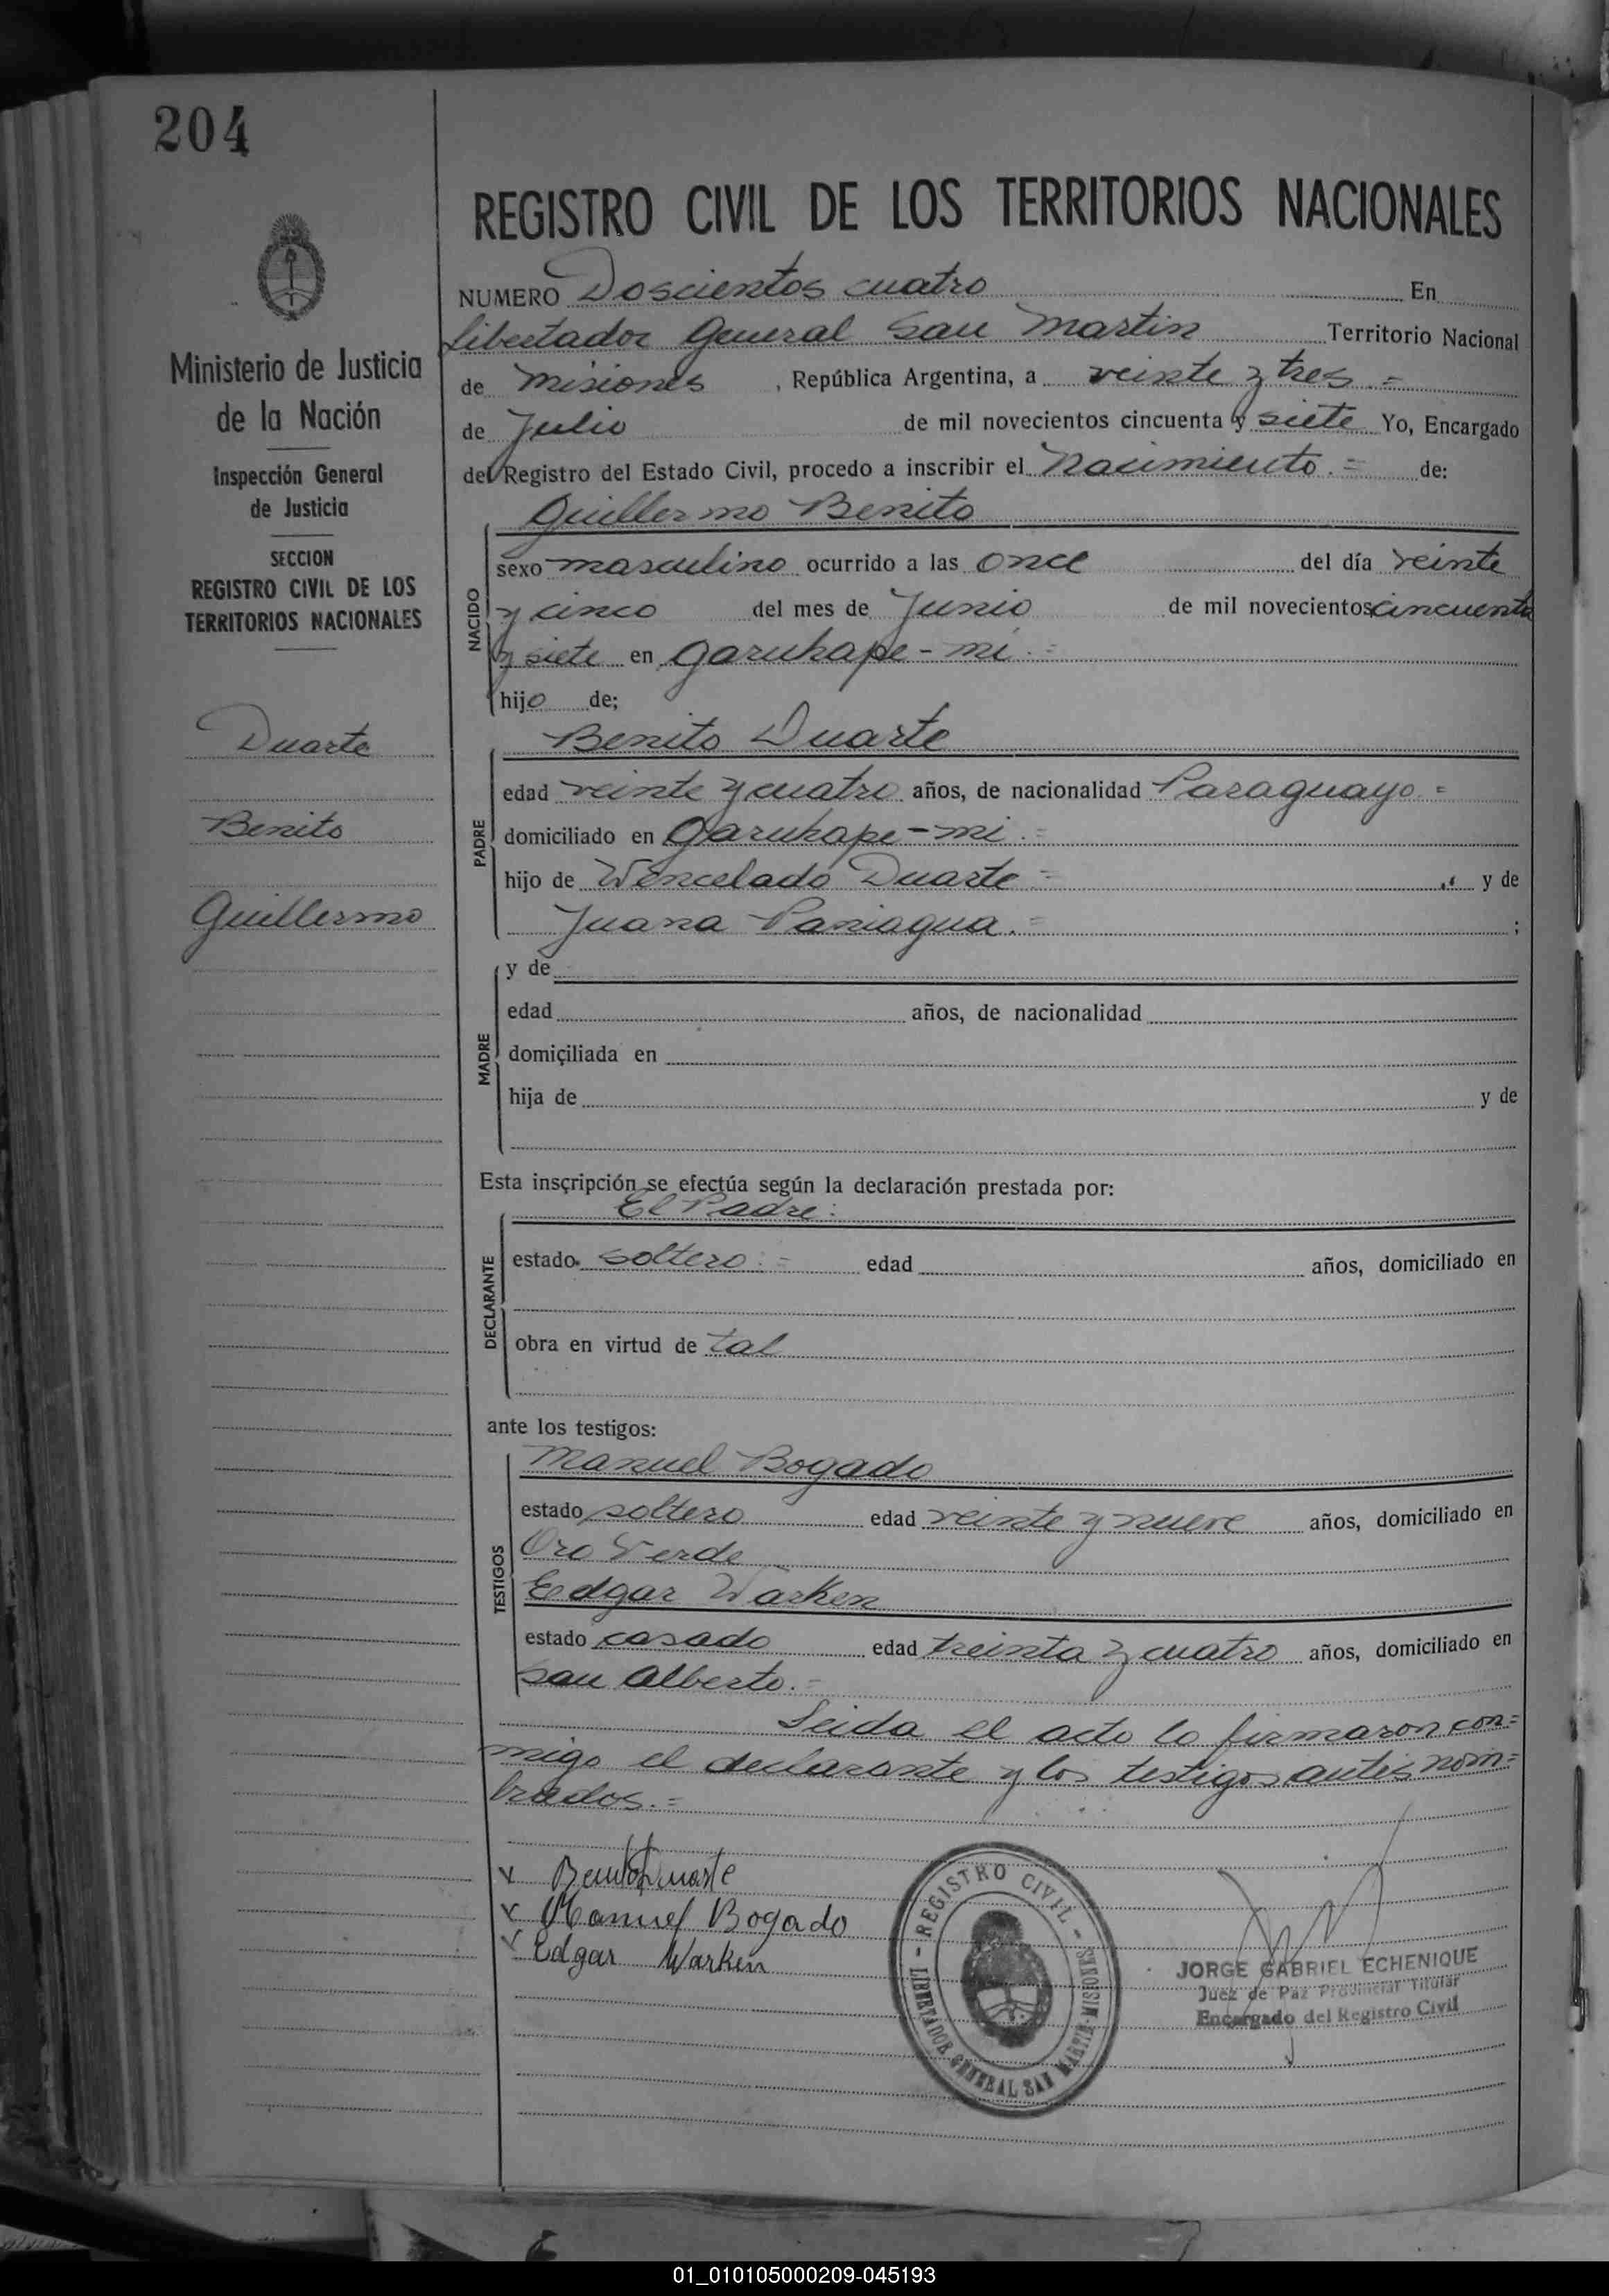 204
REGISTRO CIVIL DE LOS TERRITORIOS NACIONALES
Ministerio de Justicia
de la Nación
Inspección General
de Justicia
SECCION
REGISTRO CIVIL DE LOS
TERRITORIOS NACIONALES
Duarte
Benito
Guillermo
NUMERO Doscientos cuatro En
Libertador General San Martin Territorio Nacional
de Misiones , República Argentina, a veinte y tres.=
de Julio de mil novecientos cincuenta y siete Yo, Encargado
del Registro del Estado Civil, procedo a inscribir el Nacimiento.= de:
Guillermo Benito
NACIDO
sexo masculino ocurrido a las once del día veinte
y cinco del mes de Junio de mil novecientos cincuenta
y siete en Garuhape-mi.=
hijo de;
Benito Duarte
PADRE
edad veinte y cuatro años, de nacionalidad Paraguayo =
domiciliado en Garuhape-mi.=
hijo de Wencelado Duarte = y de
Juana Paniagua.= ;
MADRE
y de
edad años, de nacionalidad
domiciliada en
hija de y de
Esta inscripción se efectúa según la declaración prestada por:
El Padre:
DECLARANTE
estado. soltero.= edad años, domiciliado en
obra en virtud de tal
ante los testigos:
Manuel Bogado
TESTIGOS
estado soltero edad veinte y nueve años, domiciliado en
Oro Verde
Edgar Warken
estado casado edad treinta y cuatro años, domiciliado en
San Alberto.=
Leida el acto lo firmaron con=
migo el declarante y los testigos antes nom=
brados.=
x Benito Duarte
x Manuel Bogado
x Edgar Warken
- REGISTRO CIVIL -
LIBERTADOR GENERAL SAN MARTIN-MISIONES
JORGE GABRIEL ECHENIQUE
Juez de Paz Provincial Titular
Encargado del Registro Civil
01_010105000209-045193